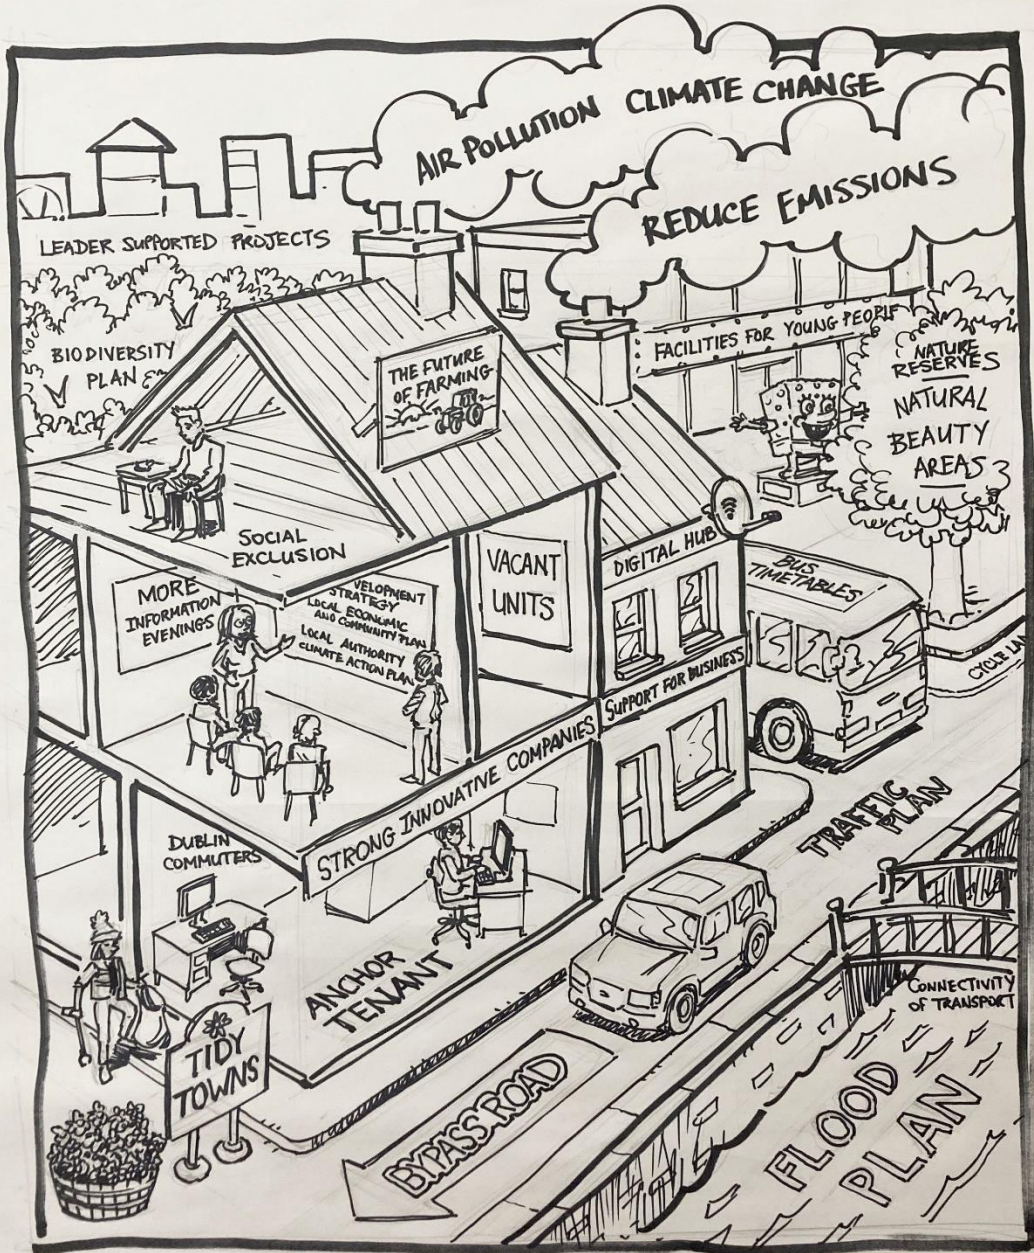 AIR POLLUTION CLIMATE CHANGE
REDUCE EMISSIONS
LEADER SUPPORTED PROJECTS
BIODIVERSITY
PLAN
THE FUTURE
OF FARMING
FACILITIES FOR YOUNG PEOPLE
NATURE
RESERVES
NATURAL
BEAUTY
AREAS
SOCIAL
EXCLUSION
MORE
INFORMATION
EVENINGS
VELOPMENT
STRATEGY
LOCAL ECONOMIC
AND COMMUNITY PLAN
LOCAL AUTHORITY
CLIMATE ACTION PLAN
VACANT
UNITS
DIGITAL HUB
BUS
TIMETABLES
CYCLE LAN
SUPPORT FOR BUSINESS
STRONG INNOVATIVE COMPANIES
TRAFFIC
PLAN
DUBLIN
COMMUTERS
ANCHOR
TENANT
CONNECTIVITY
OF TRANSPORT
TIDY
TOWNS
BYPASS ROAD
FLOOD
PLAN